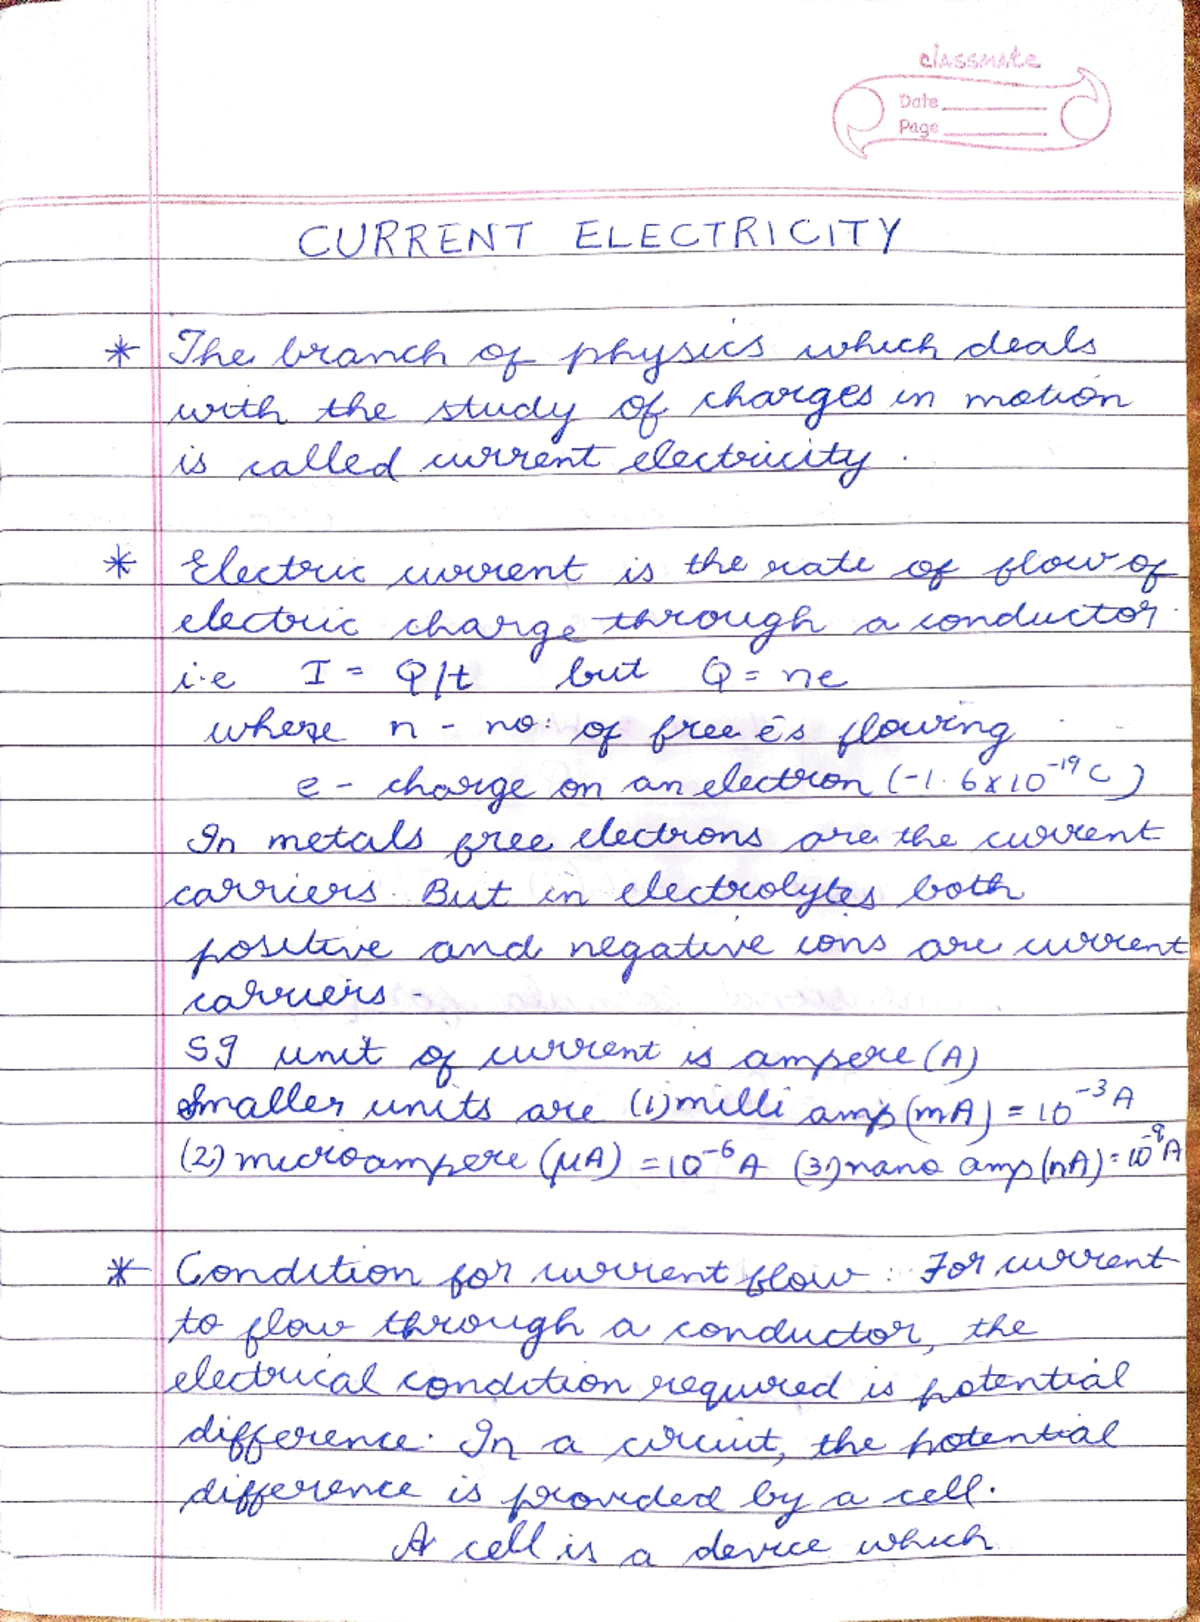 classmate
Date
Page
CURRENT ELECTRICITY
* The branch of physics which deals
with the study of charges in motion
is called current electricity.
* Electric current is the rate of flow of
electric charge through a conductor.
i.e I = Q/t but Q = ne
where n - no: of free e̅s flowing
e - charge on an electron (-1.6x10⁻¹⁹C)
In metals free electrons are the current
carriers. But in electrolytes both
positive and negative ions are current
carriers.
SI unit of current is ampere (A)
Smaller units are (1) milli amp (mA) = 10⁻³A
(2) microampere (μA) = 10⁻⁶A (3) nano amp (nA) = 10⁻⁹A
* Condition for current flow: For current
to flow through a conductor, the
electrical condition required is potential
difference. In a circuit, the potential
difference is provided by a cell.
A cell is a device which